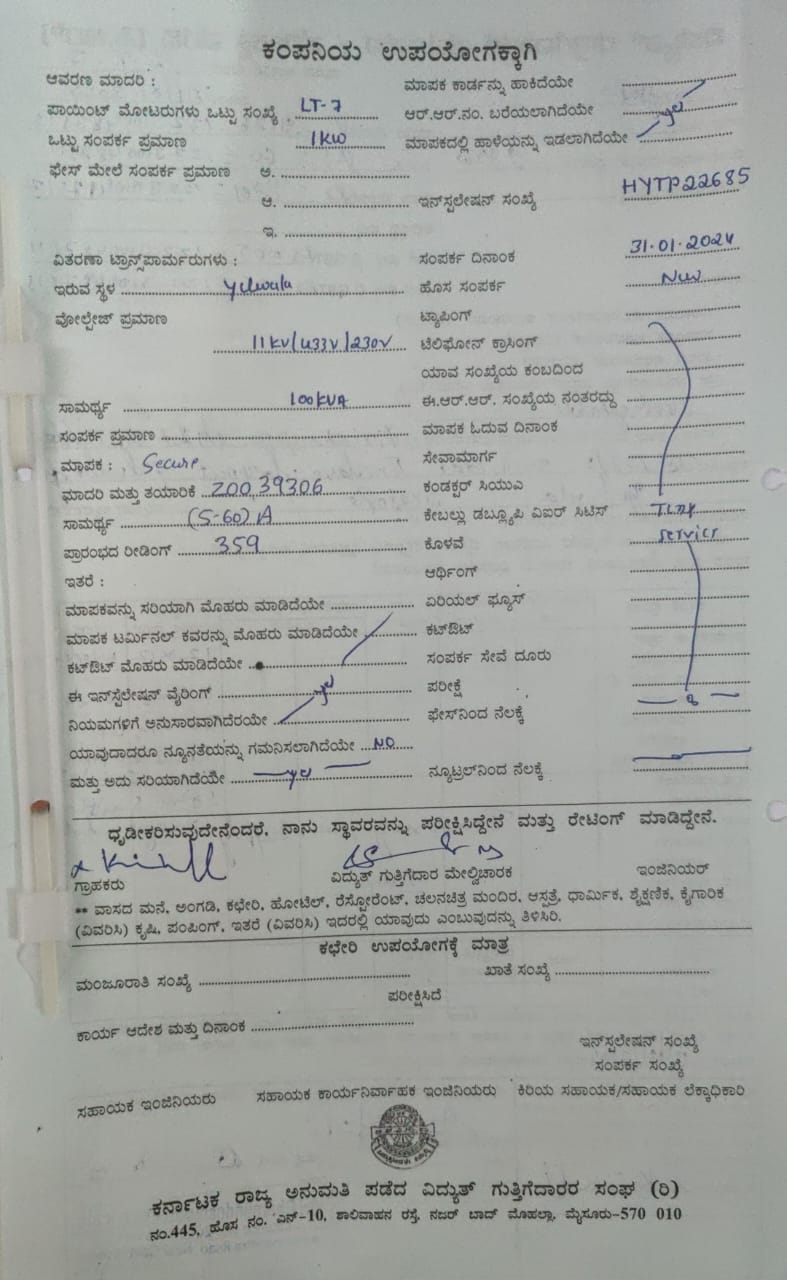 ಕಂಪನಿಯ ಉಪಯೋಗಕ್ಕಾಗಿ
ಆವರಣ ಮಾದರಿ : ಮಾಪಕ ಕಾರ್ಡನ್ನು ಹಾಕಿದೆಯೇ
ಪಾಯಿಂಟ್ ಮೋಟರುಗಳು ಒಟ್ಟು ಸಂಖ್ಯೆ LT-7 ಆರ್.ಆರ್.ನಂ. ಬರೆಯಲಾಗಿದೆಯೇ yes
ಒಟ್ಟು ಸಂಪರ್ಕ ಪ್ರಮಾಣ 1KW ಮಾಪಕದಲ್ಲಿ ಹಾಳೆಯನ್ನು ಇಡಲಾಗಿದೆಯೇ
ಫೇಸ್ ಮೇಲೆ ಸಂಪರ್ಕ ಪ್ರಮಾಣ ಅ.
ಆ. ಇನ್‌ಸ್ಪಲೇಷನ್ ಸಂಖ್ಯೆ HYTP22685
ಇ.
ವಿತರಣಾ ಟ್ರಾನ್ಸ್‌ಪಾರ್ಮರುಗಳು : ಸಂಪರ್ಕ ದಿನಾಂಕ 31.01.2024
ಇರುವ ಸ್ಥಳ Yelwala ಹೊಸ ಸಂಪರ್ಕ New
ವೋಲ್ಟೇಜ್ ಪ್ರಮಾಣ ಟ್ಯಾಪಿಂಗ್
11KV/433V/230V ಟೆಲಿಫೋನ್ ಕ್ರಾಸಿಂಗ್
ಯಾವ ಸಂಖ್ಯೆಯ ಕಂಬದಿಂದ
ಸಾಮರ್ಥ್ಯ 100KVA ಈ.ಆರ್.ಆರ್. ಸಂಖ್ಯೆಯ ನಂತರದ್ದು
ಸಂಪರ್ಕ ಪ್ರಮಾಣ ಮಾಪಕ ಓದುವ ದಿನಾಂಕ
ಮಾಪಕ : Secure ಸೇವಾಮಾರ್ಗ
ಮಾದರಿ ಮತ್ತು ತಯಾರಿಕೆ Z0039306 ಕಂಡಕ್ಟರ್ ಸಿಯುವಿ
ಸಾಮರ್ಥ್ಯ (5-60)A ಕೇಬಲ್ಲು ಡಬ್ಲ್ಯೂಪಿ ವಿಐರ್ ಸಿಟಿಸ್
ಪ್ರಾರಂಭದ ರೀಡಿಂಗ್ 359 ಕೊಳವೆ service
ಇತರೆ : ಆರ್ಥಿಂಗ್
ಮಾಪಕವನ್ನು ಸರಿಯಾಗಿ ಮೊಹರು ಮಾಡಿದೆಯೇ ಏರಿಯಲ್ ಫ್ಯೂಸ್
ಮಾಪಕ ಟರ್ಮಿನಲ್ ಕವರನ್ನು ಮೊಹರು ಮಾಡಿದೆಯೇ ಕಟ್‌ಔಟ್
ಕಟ್‌ಔಟ್ ಮೊಹರು ಮಾಡಿದೆಯೇ ಸಂಪರ್ಕ ಸೇವೆ ದೂರು
ಈ ಇನ್‌ಸ್ಪೆಲೇಷನ್ ವೈರಿಂಗ್ yes ಪರೀಕ್ಷೆ
ನಿಯಮಗಳಿಗೆ ಅನುಸಾರವಾಗಿದೆರಯೇ ಫೇಸ್‌ನಿಂದ ನೆಲಕ್ಕೆ
ಯಾವುದಾದರೂ ನ್ಯೂನತೆಯನ್ನು ಗಮನಿಸಲಾಗಿದೆಯೇ NO
ಮತ್ತು ಅದು ಸರಿಯಾಗಿದೆಯೇ yes ನ್ಯೂಟ್ರಲ್‌ನಿಂದ ನೆಲಕ್ಕೆ
ಧೃಡೀಕರಿಸುವುದೇನೆಂದರೆ, ನಾನು ಸ್ಥಾವರವನ್ನು ಪರೀಕ್ಷಿಸಿದ್ದೇನೆ ಮತ್ತು ರೇಟಿಂಗ್ ಮಾಡಿದ್ದೇನೆ.
ಗ್ರಾಹಕರು ವಿದ್ಯುತ್ ಗುತ್ತಿಗೆದಾರ ಮೇಲ್ವಿಚಾರಕ ಇಂಜಿನಿಯರ್
** ವಾಸದ ಮನೆ, ಅಂಗಡಿ, ಕಛೇರಿ, ಹೋಟೆಲ್, ರೆಸ್ಟೋರೆಂಟ್, ಚಲನಚಿತ್ರ ಮಂದಿರ, ಆಸ್ಪತ್ರೆ, ಧಾರ್ಮಿಕ, ಶೈಕ್ಷಣಿಕ, ಕೈಗಾರಿಕ
(ವಿವರಿಸಿ) ಕೃಷಿ, ಪಂಪಿಂಗ್, ಇತರೆ (ವಿವರಿಸಿ) ಇದರಲ್ಲಿ ಯಾವುದು ಎಂಬುವುದನ್ನು ತಿಳಿಸಿರಿ.
ಕಛೇರಿ ಉಪಯೋಗಕ್ಕೆ ಮಾತ್ರ
ಮಂಜೂರಾತಿ ಸಂಖ್ಯೆ ಖಾತೆ ಸಂಖ್ಯೆ
ಪರೀಕ್ಷಿಸಿದೆ
ಕಾರ್ಯ ಆದೇಶ ಮತ್ತು ದಿನಾಂಕ
ಇನ್‌ಸ್ಪಲೇಷನ್ ಸಂಖ್ಯೆ
ಸಂಪರ್ಕ ಸಂಖ್ಯೆ
ಸಹಾಯಕ ಇಂಜಿನಿಯರು ಸಹಾಯಕ ಕಾರ್ಯನಿರ್ವಾಹಕ ಇಂಜಿನಿಯರು ಕಿರಿಯ ಸಹಾಯಕ/ಸಹಾಯಕ ಲೆಕ್ಕಾಧಿಕಾರಿ
ಕರ್ನಾಟಕ ರಾಜ್ಯ ಅನುಮತಿ ಪಡೆದ ವಿದ್ಯುತ್ ಗುತ್ತಿಗೆದಾರರ ಸಂಘ (ರಿ)
ನಂ.445, ಹೊಸ ನಂ. ಎನ್-10, ಶಾಲಿವಾಹನ ರಸ್ತೆ, ನಜರ್ ಬಾದ್ ಮೊಹಲ್ಲಾ, ಮೈಸೂರು-570 010